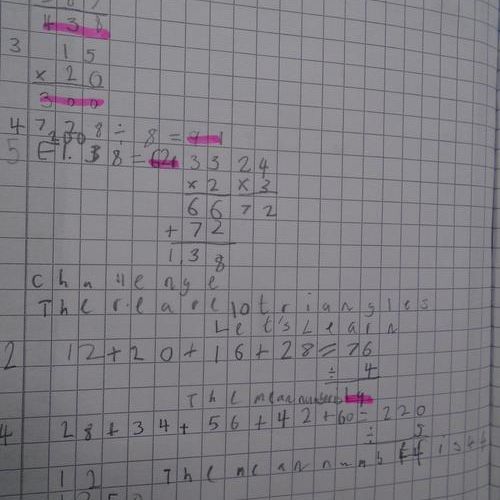 438
3 15
× 20
300
4 728 ÷ 8 = 91
5 £1.38 =
33 24
× 2 × 3
66 72
+ 72
138
Challenge
There are 10 triangles
Let's Learn
2 12+20+16+28=76
÷ 4
The mean number 19
4 28+34+56+42+60=220
÷ 5
12 The mean numb 44 is